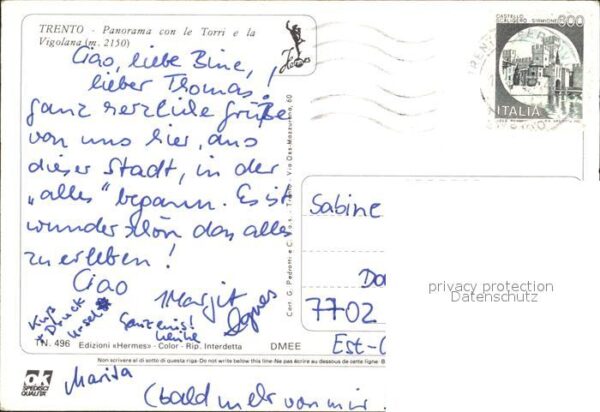 TRENTO - Panorama con le Torri e la
Vigolana (m. 2150)
Ciao, liebe Bine,
lieber Thomas!
ganz herzliche Grüße
von uns hier, aus
dieser Stadt, in der
„alles" begann. Es ist
wunderschön das alles
zu erleben!
Ciao
Margit
Agnes
Kuß
Druck
Ganz
Marita
(bald mehr von mir
N. 496 Edizioni «Hermes» - Color - Rip. Interdetta DMEE
Non scrivere al di sotto di questa riga - Do not write below this line - Ne pas écrire au dessous de cette ligne
OK
SPEDISCI
QUALITÀ
Cert. G. Pedrotti e C. s.a.s. - Trento - Via Das-Mazzurana, 60
CASTELLO
SIRMIONE
600
ITALIA
Sabine
7702
privacy protection
Datenschutz